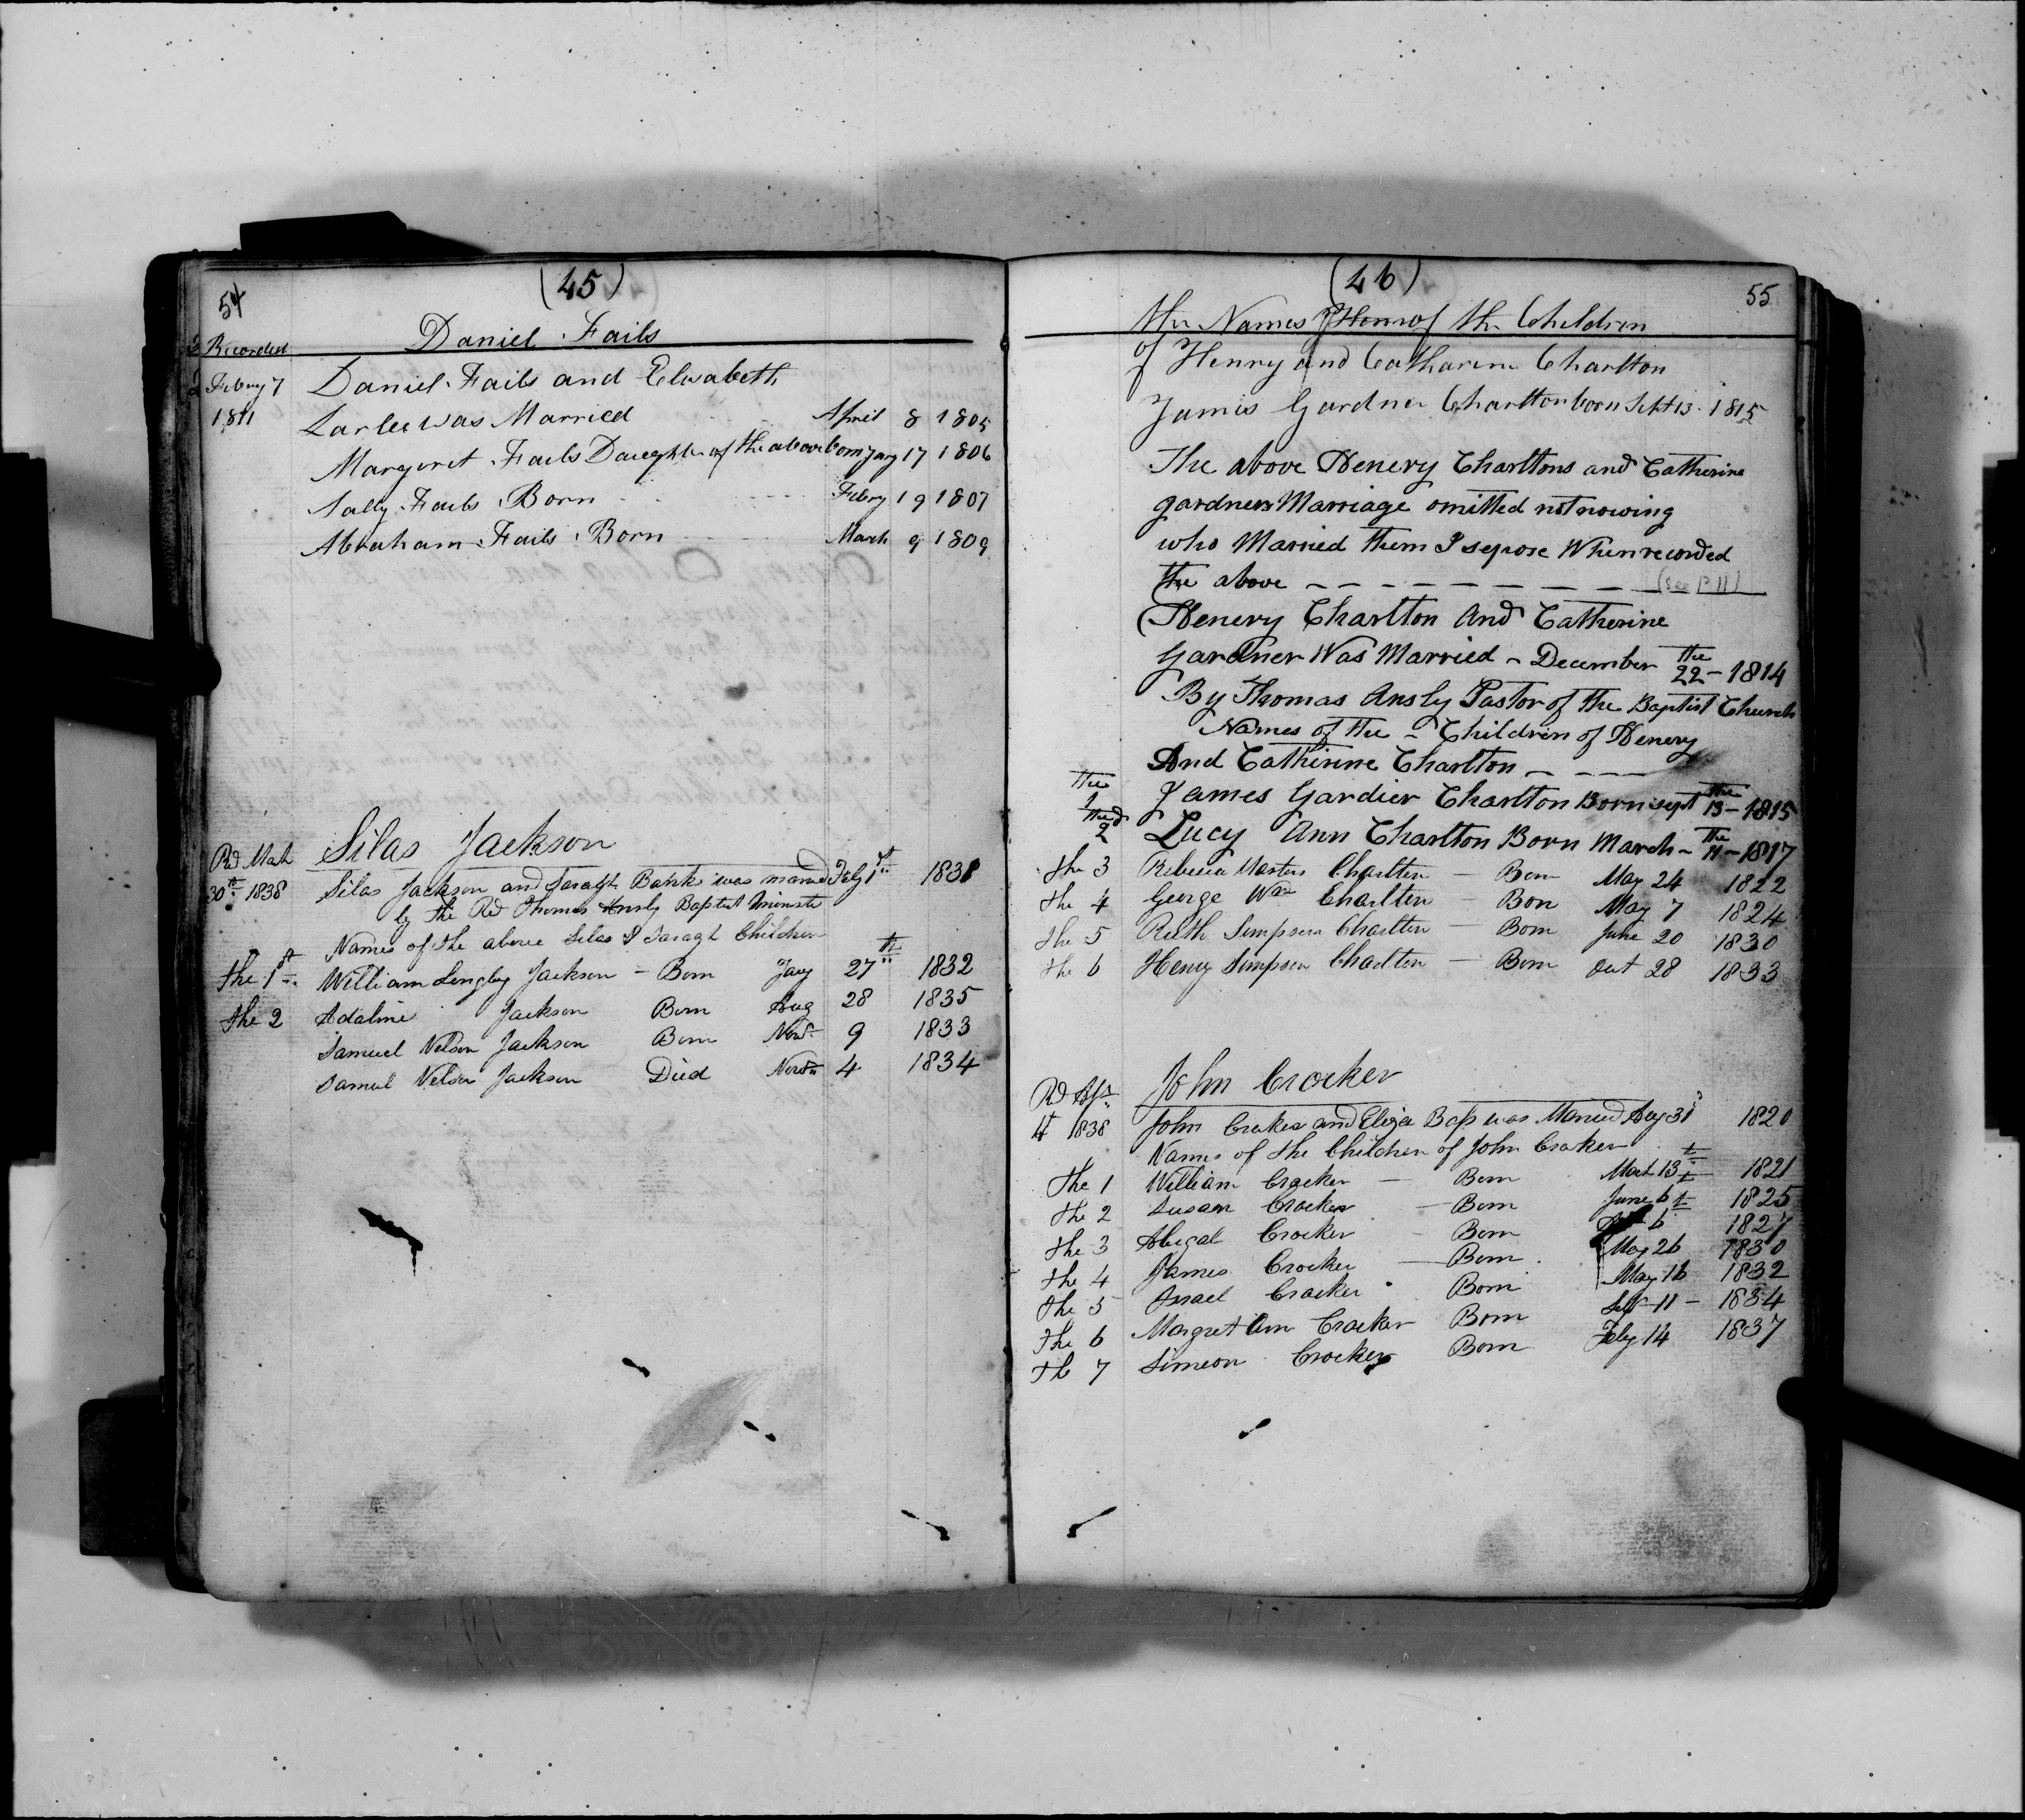 (45)
54
Recorded Daniel Fails
Febuy 7 Daniel Fails and Elisabeth
1811 Larlee was Married April 8 1805
Margeret Fails Daughter of the above born Jany 17 1806
Sally Fails Born Febry 19 1807
Abraham Fails Born March 9 1809
Silas Jackson
Rd Mach
30th 1838 Silas Jackson and Saragh Banks was maried Feby 1st 1831
by the Rd Thomas Ansly Baptist Minister
Names of the above Silas & Saragh Children
the 1st William Lengley Jackson - Born Jany 27th 1832
the 2 Adaline Jackson Born Aug 28 1835
Samuel Nelson Jackson Born Novr 9 1833
Samuel Nelson Jackson Died Novr 4 1834
(46)
55
the Names of the Children
of Henry and Catharine Charlton
James Gardner Charlton born Sept 13 1815
The above Henery Charltons and Catherine
gardners Marriage omitted not nowing
who Married them I sepose When recorded
the above - - - - - - - - (see P 11)
Henery Charlton And Catherine
Gardner Was Married - December the 22 - 1814
By Thomas Ansly Pastor of the Baptist Church
Names of the - Children of Henery
And Catherine Charlton - - - -
the 1 James Gardier Charlton Born sept the 13 - 1815
the 2d Lucy Ann Charlton Born March - the 11 - 1817
the 3 Rebecca Masters Charlton - Born May 24 1822
the 4 George Wm Charlton - Born May 7 1824
the 5 Ruth Simpson Charlton - Born June 20 1830
the 6 Henry Simpson Charlton - Born Oct 28 1833
John Crocker
Rd Apr
4t 1838 John Crocker and Eliza Bass was Maried Aug 31 1820
Names of the Children of John Crocker
the 1 William Crocker - Born Mach 13th 1821
the 2 Susan Crocker - Born June 6t 1825
the 3 Abigal Crocker - Born 6 1827
the 4 James Crocker - Born May 26 1830
the 5 Israel Crocker Born May 16 1832
the 6 Margret Ann Crocker Born Sept 11 - 1834
th 7 Simeon Crocker Born Feby 14 1837